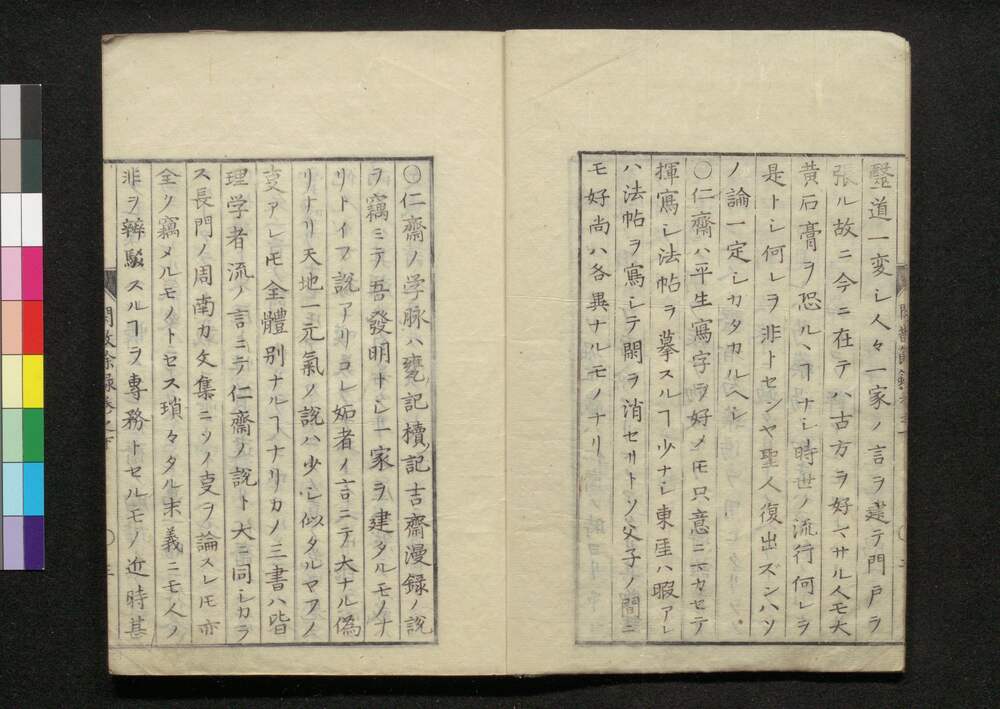 醫道一変シ人々一家ノ言ヲ建テ門戸ヲ
張ル故ニ今ニ在テハ古方ヲ好マサル人モ大
黄石膏ヲ恐ルヽヿナシ時世ノ流行何レヲ
是トシ何レヲ非トセンヤ聖人復出ズンハソ
ノ論一定シカタカルヘシ
〇仁齋ハ平生寫字ヲ好メ𪜈只意ニマカセテ
揮寫シ法帖ヲ摹スルヿ少ナシ東涯ハ暇アレ
ハ法帖ヲ寫シテ閑ヲ消セリトソ父子ノ間ニ
モ好尚ハ各異ナルモノナリ
〇仁齋ノ学脉ハ甕記櫝記吉齋漫録ノ説
ヲ竊ミテ吾發明トシ一家ヲ建タルモノナ
リトイフ説アリコレ妬者ノ言ニテ大ナル偽
リナリ天地一元氣ノ説ハ少シ似タルヤフノ
叓アレ𪜈全體別ナルヿナリカノ三書ハ皆
理学者流ノ言ニテ仁齋ノ説ト大ニ同シカラ
ス長門ノ周南カ文集ニソノ叓ヲ論スレ𪜈亦
全ク竊メルモノトセス瑣々タル末義ニモ人ノ
非ヲ辨駁スルヿヲ專務トセルモノ近時甚